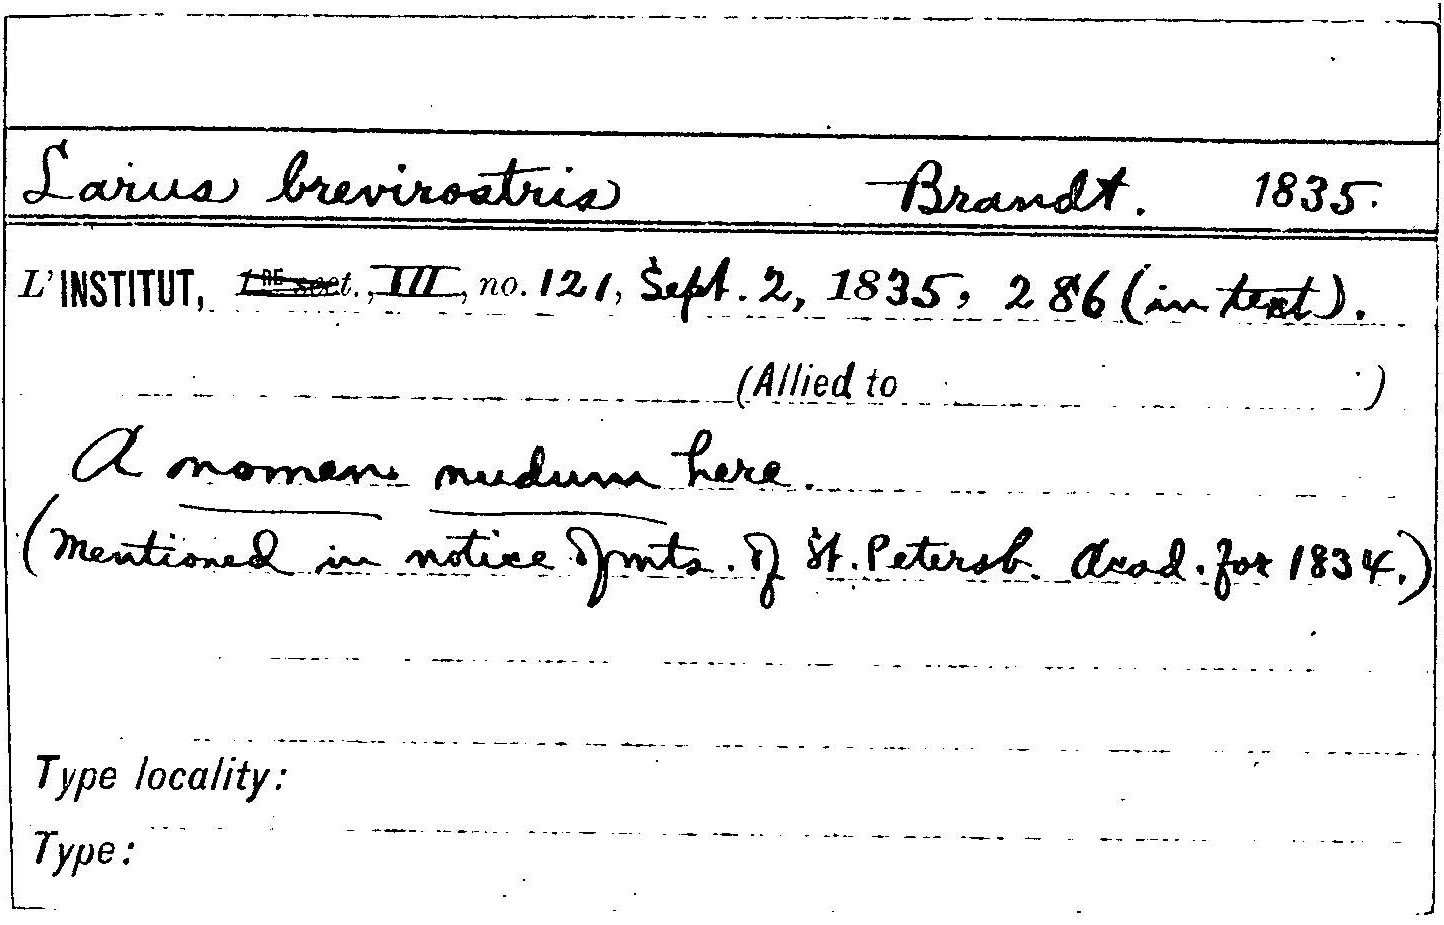 Larus brevirostris Brandt. 1835.
L'INSTITUT, 1RE sect., III, no. 121, Sept. 2, 1835, 286 (in text).
(Allied to )
A nomen nudum here.
(Mentioned in notice of mts. of St. Petersb. Acad. for 1834.)
Type locality:
Type: